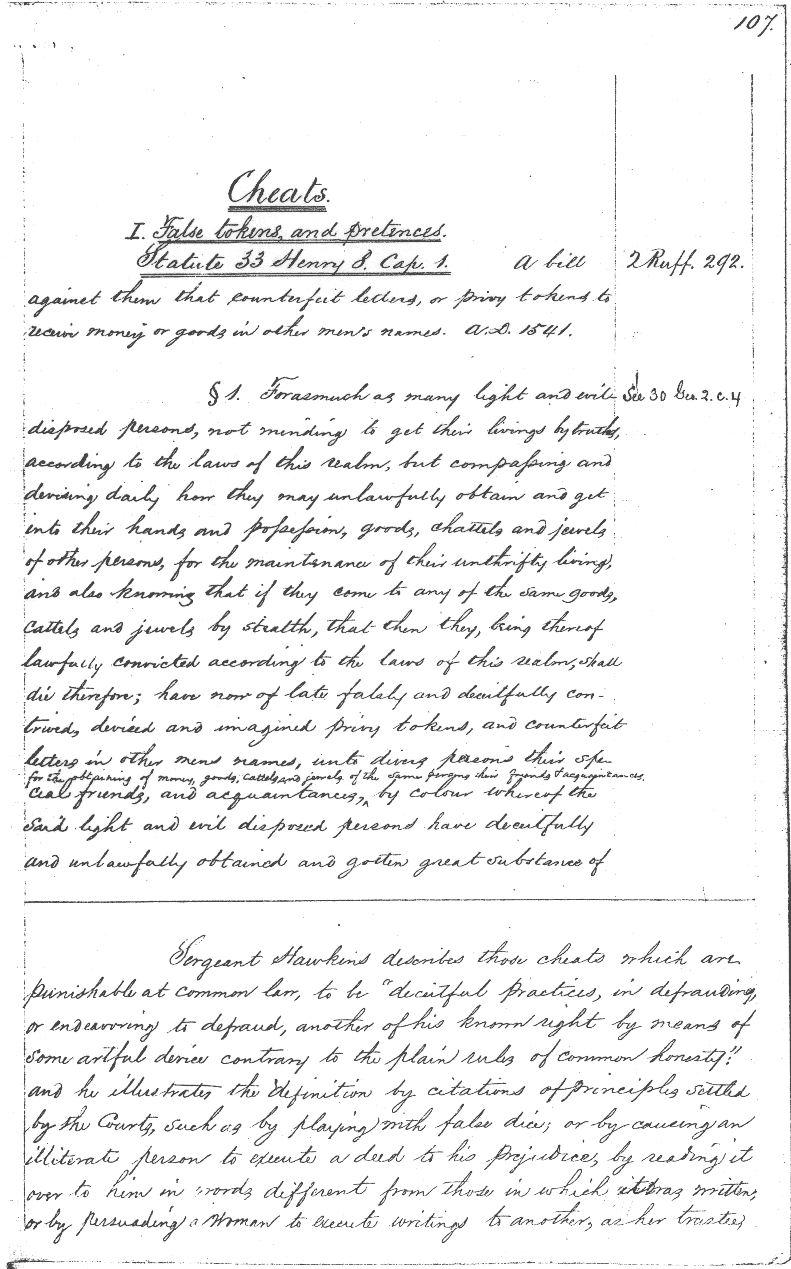 107.
Cheats.
I. False tokens, and pretences.
Statute 33 Henry 8. Cap. 1. A bill 2 Ruff. 292.
against them that counterfeit letters, or privy tokens to
receive money or goods in other men's names. A.D. 1541.
§ 1. Forasmuch as many light and evil See 30 Geo. 2. c. 4
disposed persons, not minding to get their livings by truth,
according to the laws of this realm, but compassing and
devising daily how they may unlawfully obtain and get
into their hands and possession, goods, chattels and jewels
of other persons, for the maintenance of their unthrifty living,
and also knowing that if they come to any of the same goods,
cattels and jewels by stealth, that then they, being thereof
lawfully convicted according to the laws of this realm, shall
die therefore; have now of late falsly and deceitfully con-
trived, devised and imagined privy tokens, and counterfeit
letters in other mens names, unto divers persons their spe-
for the obtaining of money, goods, cattels and jewels of the same persons their friends & acquaintances.
cial friends, and acquaintances, ‸ by colour whereof the
said light and evil disposed persons have deceitfully
and unlawfully obtained and gotten great substance of
Sergeant Hawkins describes those cheats which are
punishable at common law, to be "deceitful practices, in defrauding,
or endeavoring to defraud, another of his known right by means of
some artful device contrary to the plain rules of common honesty":
and he illustrates the definition by citations of principles settled
by the Courts, such as by playing with false dice; or by causing an
illiterate person to execute a deed to his prejudice, by reading it
over to him in words different from those in which it was written;
or by persuading a woman to execute writings to another, as her trustee,